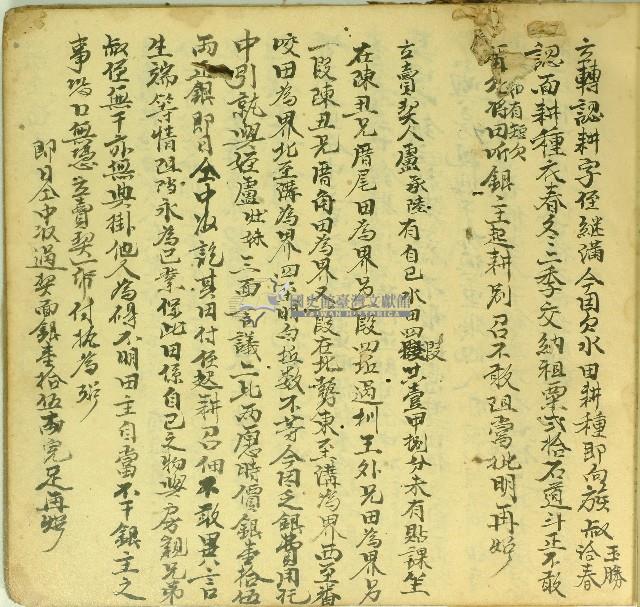 立轉認耕字侄継滿今因欠水田耕種即向族叔洽春玉勝
認面耕種衣春冬三季交納租粟弍拾石道斗正不敢
有短欠
將田听銀主起耕別召不敢阻當批明再炤
立賣契人盧承陸有自己水田四段共壹甲捌分未有貼課坐
在陳丑兄厝尾田為界另一段四班過圳王外兄田為界另
一段陳丑兄厝角田為界又一段在北勢東至溝為界西至番
咬田為界北至溝為界四至明白拉数不等今因乏銀費用托
中引就與姪盧壯妹三面言議二比両愿時價銀壹拾伍
両正銀即日仝中收訖其田付侄起耕召佃不敢異言
生端等情阻擋永為己業保此田係自己之物與房親兄弟
叔侄無干亦無典掛他人為碍不明田主自當不干銀主之
事恐口無憑立賣契一帋付执為炤
即日仝中收過契面銀壹拾伍両完足再炤
國史館臺灣文獻館
TAIWAN HISTORICA